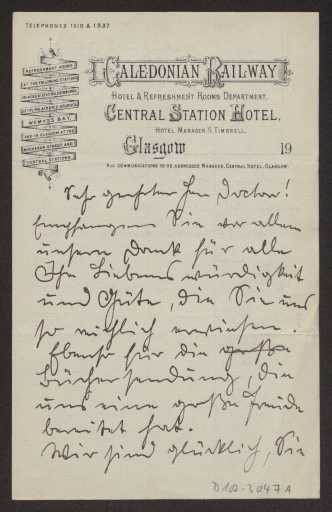 TELEPHONES 1510 & 1937.
REFRESHMENT ROOMS
AT THE FOLLOWING STATIONS
WEMYSS BAY,
AND IN GLASGOW AT THE
BUCHANAN STREET AND
CENTRAL STATIONS.
CALEDONIAN RAILWAY
HOTEL & REFRESHMENT ROOMS DEPARTMENT.
CENTRAL STATION HOTEL,
HOTEL MANAGER S. TIMBRELL.
Glasgow 19
ALL COMMUNICATIONS TO BE ADDRESSED MANAGER, CENTRAL HOTEL, GLASGOW.
Sehr geehrter Herr Doctor!
Empfangen Sie vor allem
unsern Dank für alle
Ihre Liebenswürdigkeit
und Güte, die Sie uns
so reichlich erwiesen.
Ebenso für die große
Büchersendung, die
uns eine große Freude
bereitet hat.
Wir sind glücklich, Sie